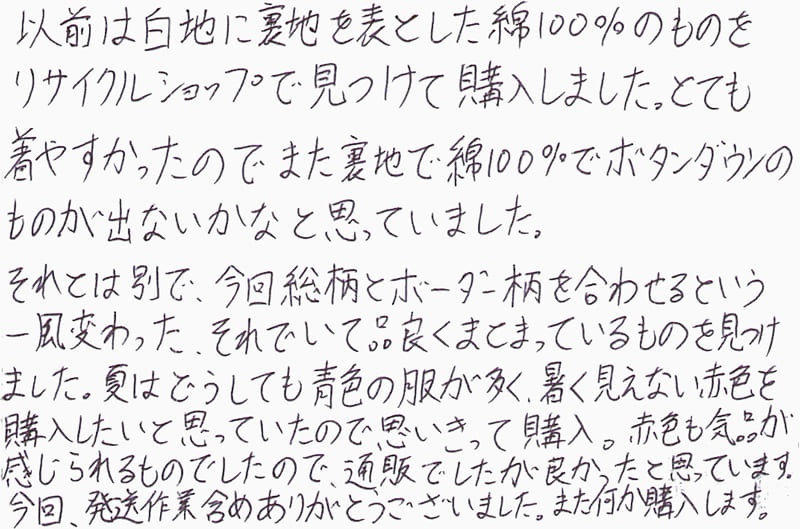 以前は白地に裏地を表とした綿100%のものを
リサイクルショップで見つけて購入しました。とても
着やすかったのでまた裏地で綿100%でボタンダウンの
ものが出ないかなと思っていました。
それとは別で、今回総柄とボーダー柄を合わせるという
一風変わった、それでいて品良くまとまっているものを見つけ
ました。夏はどうしても青色の服が多く、暑く見えない赤色を
購入したいと思っていたので思いきって購入。赤色も気品が
感じられるものでしたので、通販でしたが良かったと思っています。
今回、発送作業含めありがとうございました。また何か購入します。